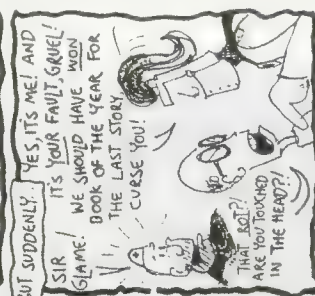 BUT SUDDENLY.
YES, IT'S ME! AND
IT'S YOUR FAULT, GRUEL!
WE SHOULD HAVE WON
BOOK OF THE YEAR FOR
THE LAST STORY.
CURSE YOU!
SIR
GLAME!
THAT ROT?!
ARE YOU TOUCHED
IN THE HEAD?!